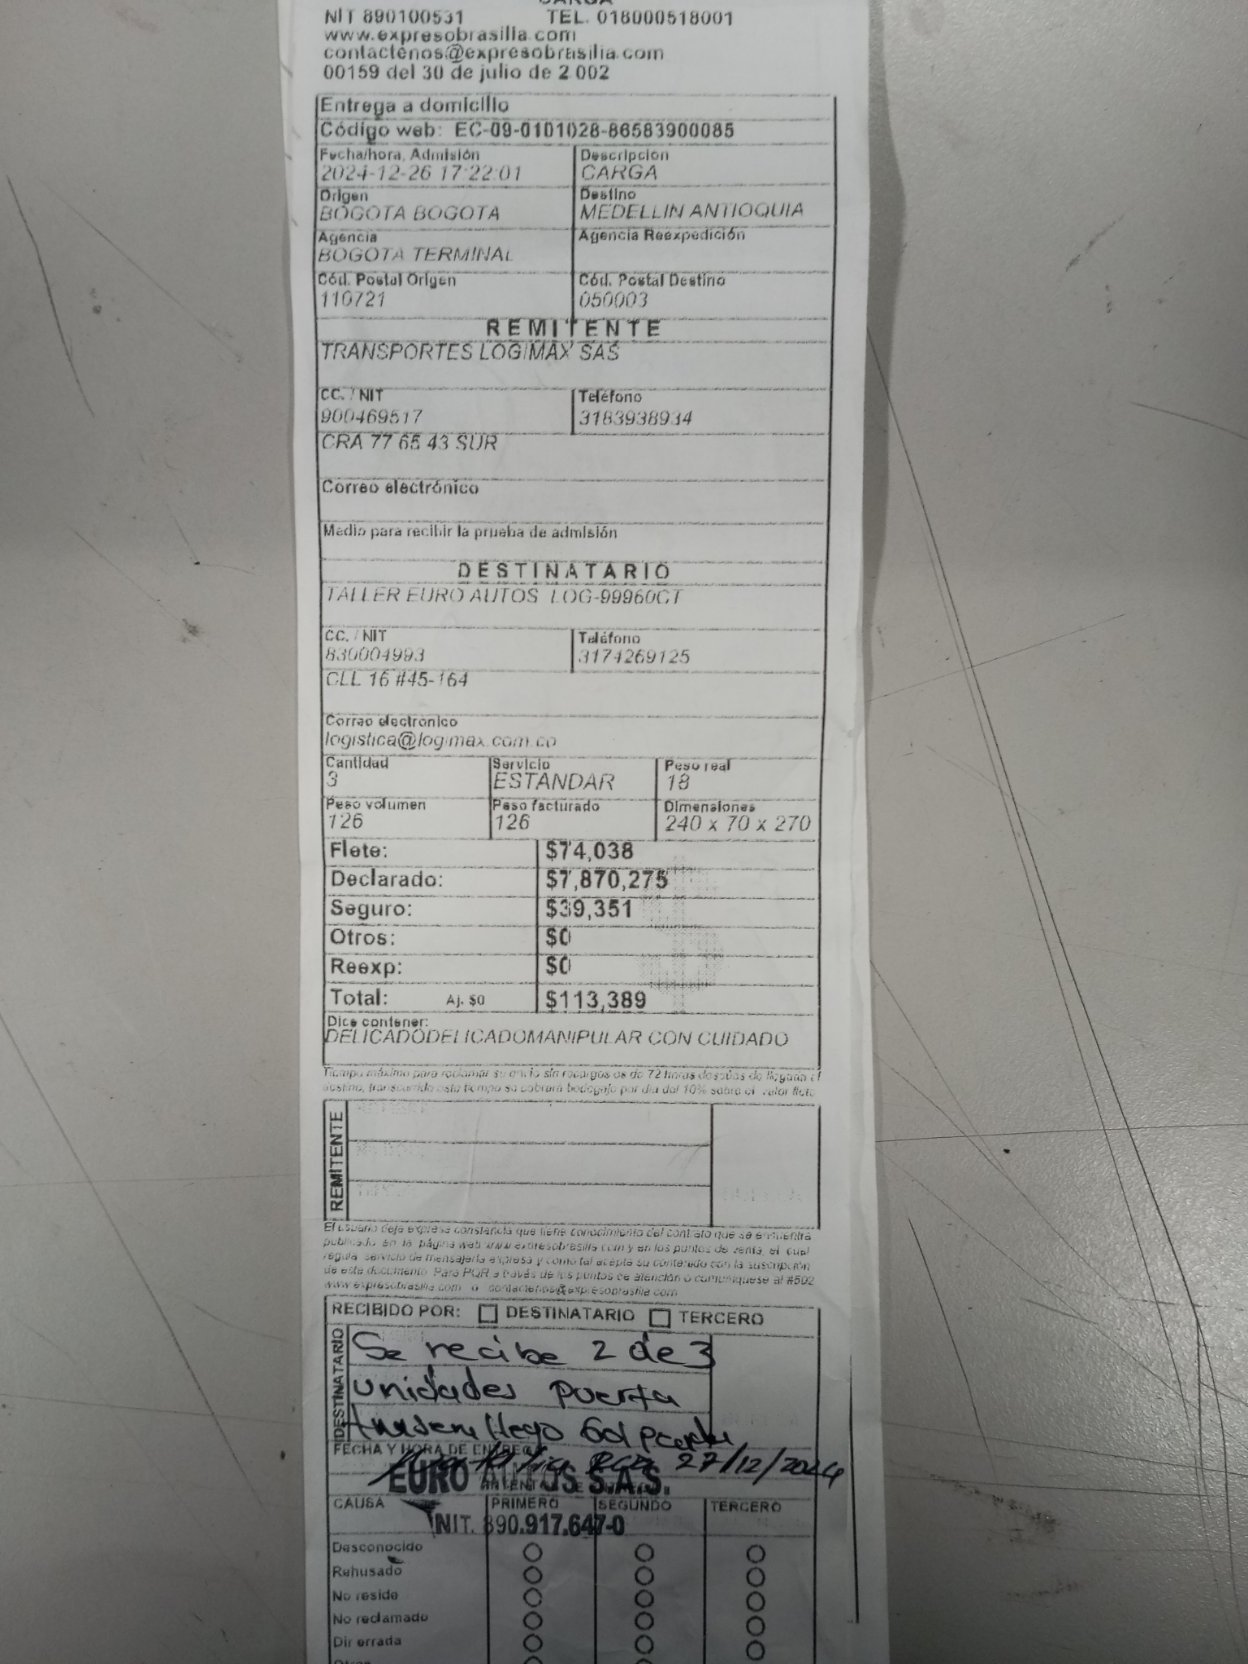 CARGA
NIT 890100531 TEL. 018000518001
www.expresobrasilia.com
contactenos@expresobrasilia.com
00159 del 30 de julio de 2 002
Entrega a domicilio
Código web: EC-09-0101028-86583900085
Fecha/hora, Admisión Descripcion
2024-12-26 17:22:01 CARGA
Origen Destino
BOGOTA BOGOTA MEDELLIN ANTIOQUIA
Agencia Agencia Reexpedición
BOGOTA TERMINAL
Cód. Postal Origen Cód. Postal Destino
110721 050003
REMITENTE
TRANSPORTES LOGIMAX SAS
CC. / NIT Teléfono
900469517 3183938934
CRA 77 65 43 SUR
Correo electrónico
Medio para recibir la prueba de admisión
DESTINATARIO
TALLER EURO AUTOS LOG-99960CT
CC. / NIT Teléfono
830004993 3174269125
CLL 16 #45-164
Correo electronico
logistica@logimax.com.co
Cantidad Servicio Peso real
3 ESTANDAR 18
Peso volumen Peso facturado Dimensiones
126 126 240 x 70 x 270
Flete: $74,038
Declarado: $7,870,275
Seguro: $39,351
Otros: $0
Reexp: $0
Total: Aj. $0 $113,389
Dice contener:
DELICADODELICADOMANIPULAR CON CUIDADO
Tiempo máximo para reclamar su envío sin recargos es de 72 horas después de llegada al
destino, transcurrido este tiempo se cobrará bodegaje por día del 10% sobre el valor flete
REMITENTE
El usuario deja expresa constancia que tiene conocimiento del contrato que se encuentra
publicado en la página web www.expresobrasilia.com y en los puntos de venta, el cual
regula servicio de mensajería expresa y como tal acepta su contenido con la suscripción
de este documento. Para PQR a través de los puntos de atención o comuníquese al #502
www.expresobrasilia.com o contactenos@expresobrasilia.com
RECIBIDO POR: DESTINATARIO TERCERO
DESTINATARIO
Se recibe 2 de 3
unidades puerta
llego
FECHA Y HORA DE ENTREGA
27/12/2024
EURO AUTOS S.A.S.
CAUSA PRIMERO SEGUNDO TERCERO
NIT. 890.917.647-0
Desconocido
Rehusado
No reside
No reclamado
Dir errada
Otros